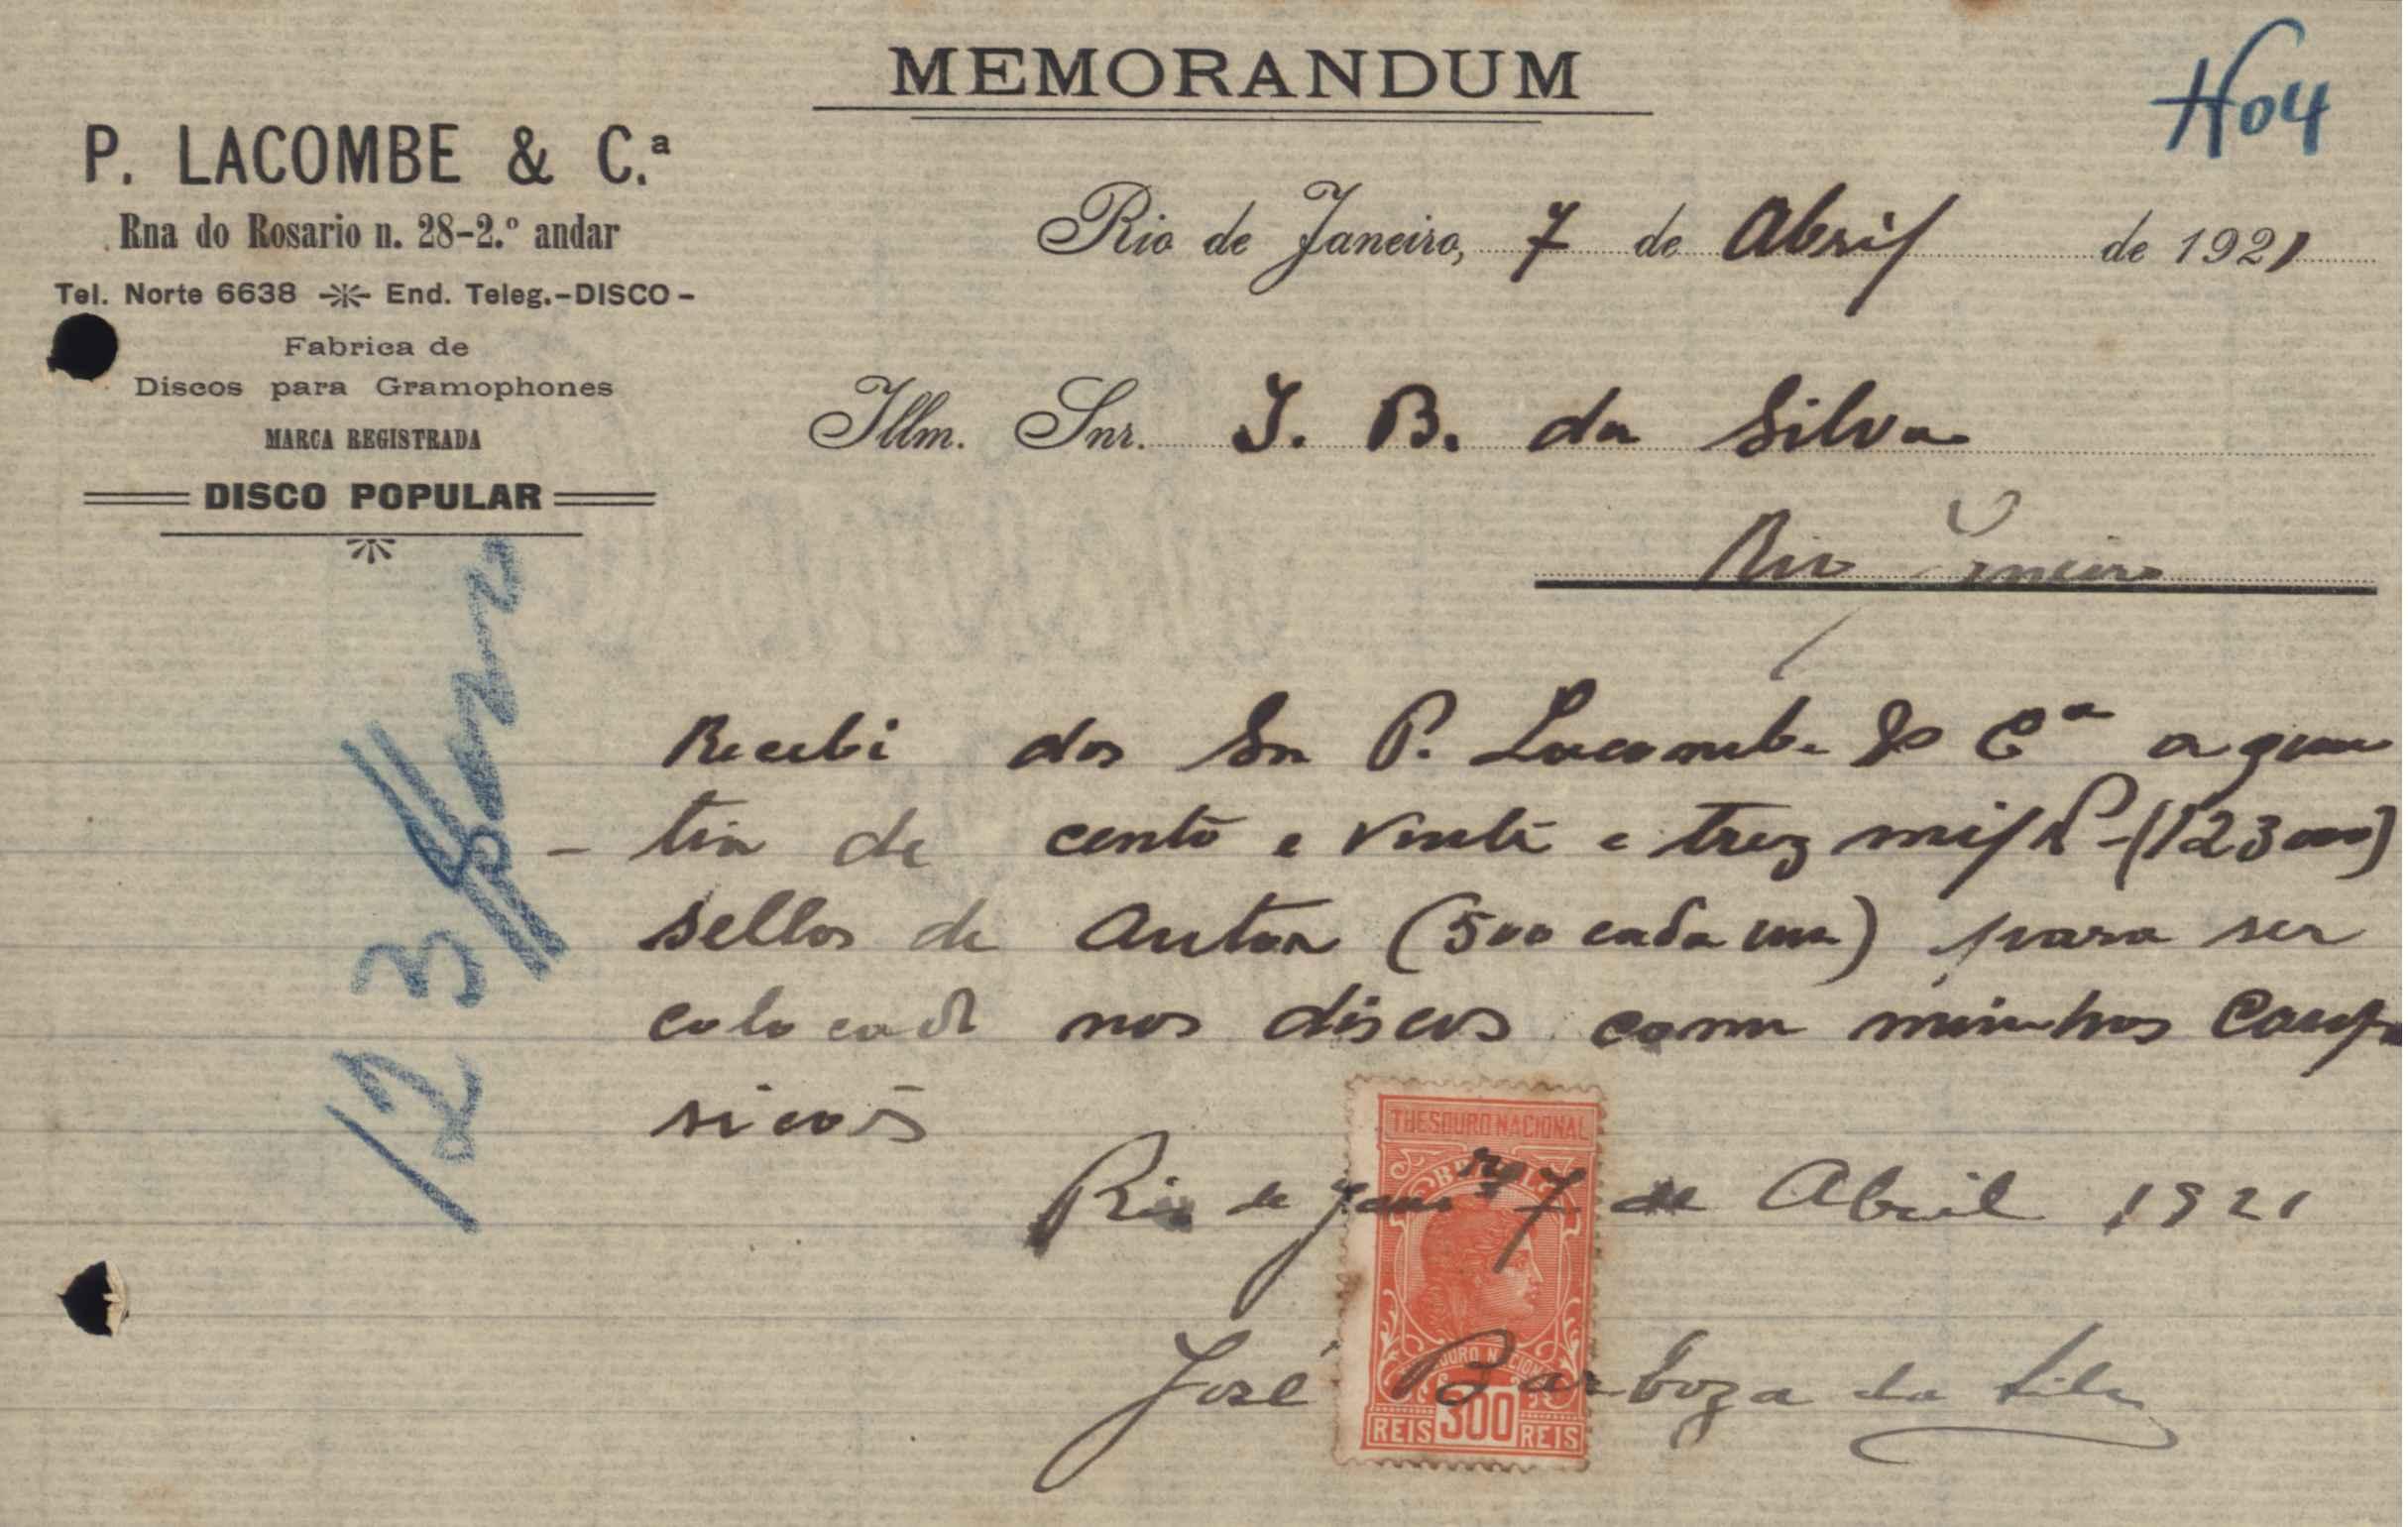 MEMORANDUM
H04
P. LACOMBE & C.ª
Rna do Rosario n. 28-2.º andar
Tel. Norte 6638 End. Teleg.-DISCO-
Fabrica de
Discos para Gramophones
MARCA REGISTRADA
DISCO POPULAR
Rio de Janeiro, 7 de Abril de 1921
Illm. Snr. J. B. da Silva
Rio Janeiro
Recebi dos Sn P. Lacombe & Cª a quan
tia de cento e vinte e trez mil (123000)
sellos de Autor (500 cada um) para ser
colocado nos discos com minhas Compo
sicoẽs
THESOURO NACIONAL
Rio de Janro 7 de Abril 1921
José Barboza da Silva
THESOURO NACIONAL
REIS 300 REIS
123$000